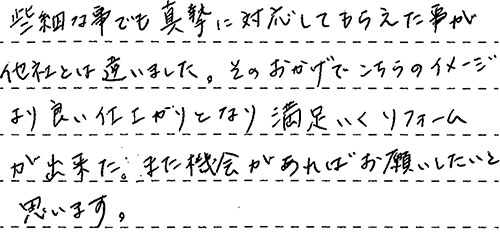 些細な事でも真摯に対応してもらえた事が
他社とは違いました。そのおかげでこちらのイメージ
より良い仕上がりとなり満足いくリフォーム
が出来た。また機会があればお願いしたいと
思います。